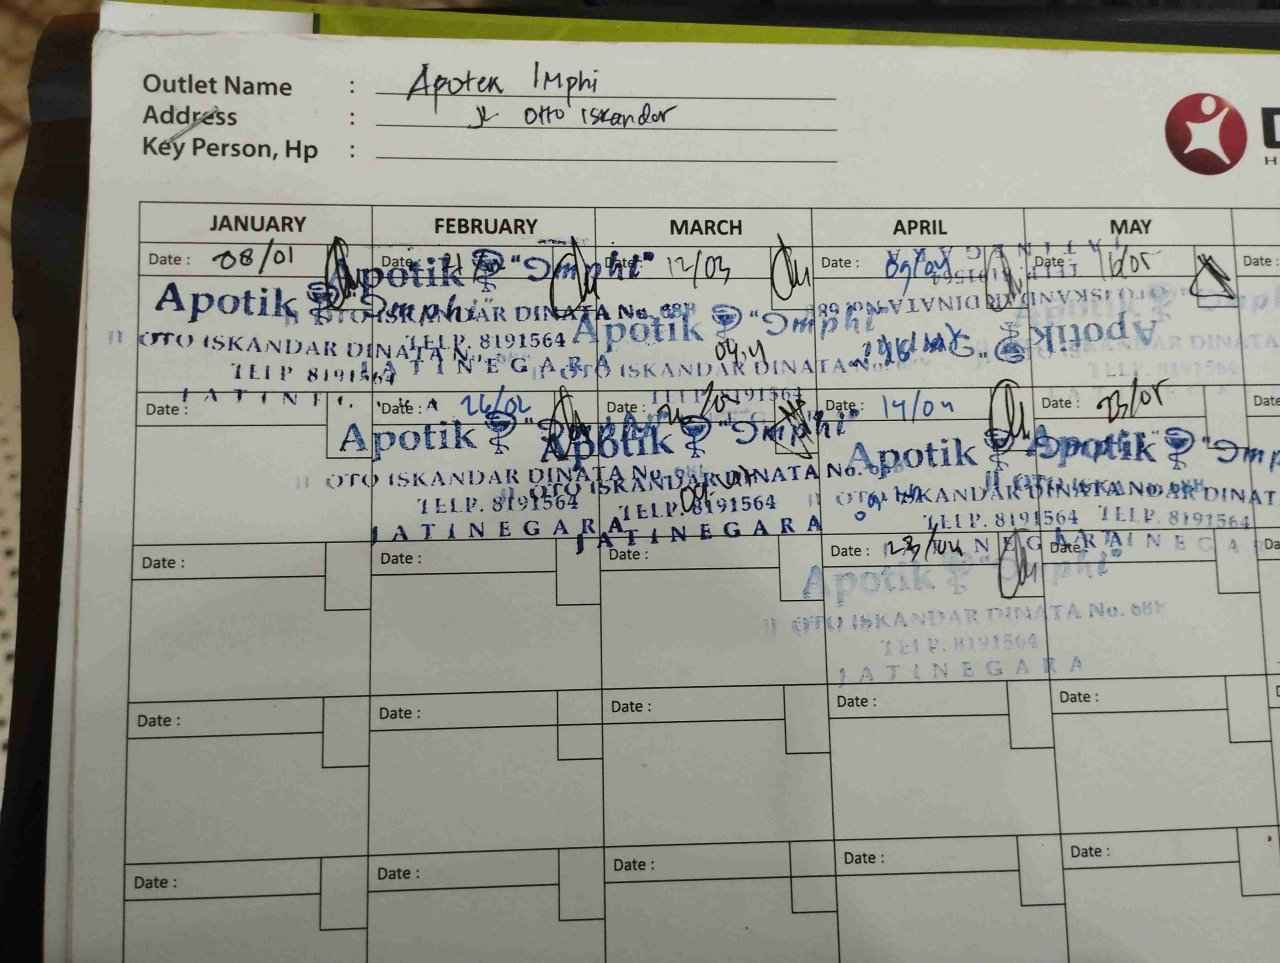 Outlet Name : Apotek Imphi
Address : Jl Otto Iskandar
Key Person, Hp :
JANUARY FEBRUARY MARCH APRIL MAY
Date : 08/01 Date : Date : 12/03 Date : 09/04 Date :
Apotik "Imphi"
Jl OTO ISKANDAR DINATA No. 68H
TELP. 8191564
JATINEGARA
Apotik "Imphi"
OTO ISKANDAR DINATA No.
TELP 8191564
JATINE
Apotik "Imphi"
OTO ISKANDAR DINATA No.
TELP. 8191564
Apotik
ISKANDAR DINATA No. 68
TELP. 81915
JATINEGARA
Date : Date : 26/02 Date : Date : 14/04 Date : 23/05
Apotik "Imphi"
Jl OTO ISKANDAR DINATA No.
TELP. 8191564
JATINEGARA
Apotik "Imphi"
Jl OTO ISKANDAR DINATA No. 68
TELP. 8191564
JATINEGARA
Apotik "Imphi"
Jl OTO ISKANDAR DINATA No. 68H
TELP. 8191564
JATINEGARA
Apotik "Imp
OTO ISKANDAR DINAT
TELP. 8191564
JATINEGA
Date : Date : Date : Date : 23/04 Date :
Apotik "Imphi"
Jl OTO ISKANDAR DINATA No. 68H
TELP. 8191564
JATINEGARA
Date : Date : Date : Date : Date :
Date : Date : Date : Date : Date :